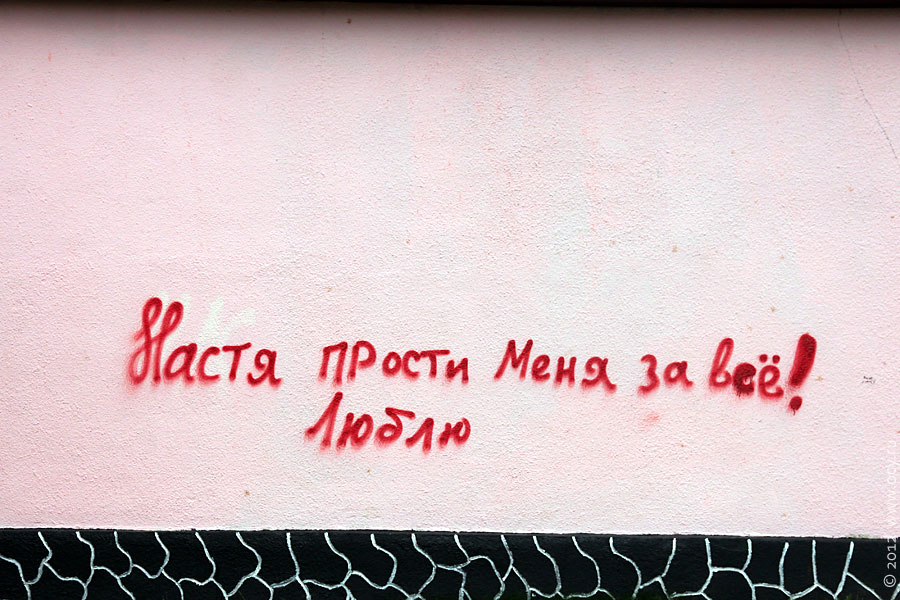 Настя прости меня за всё!
Люблю